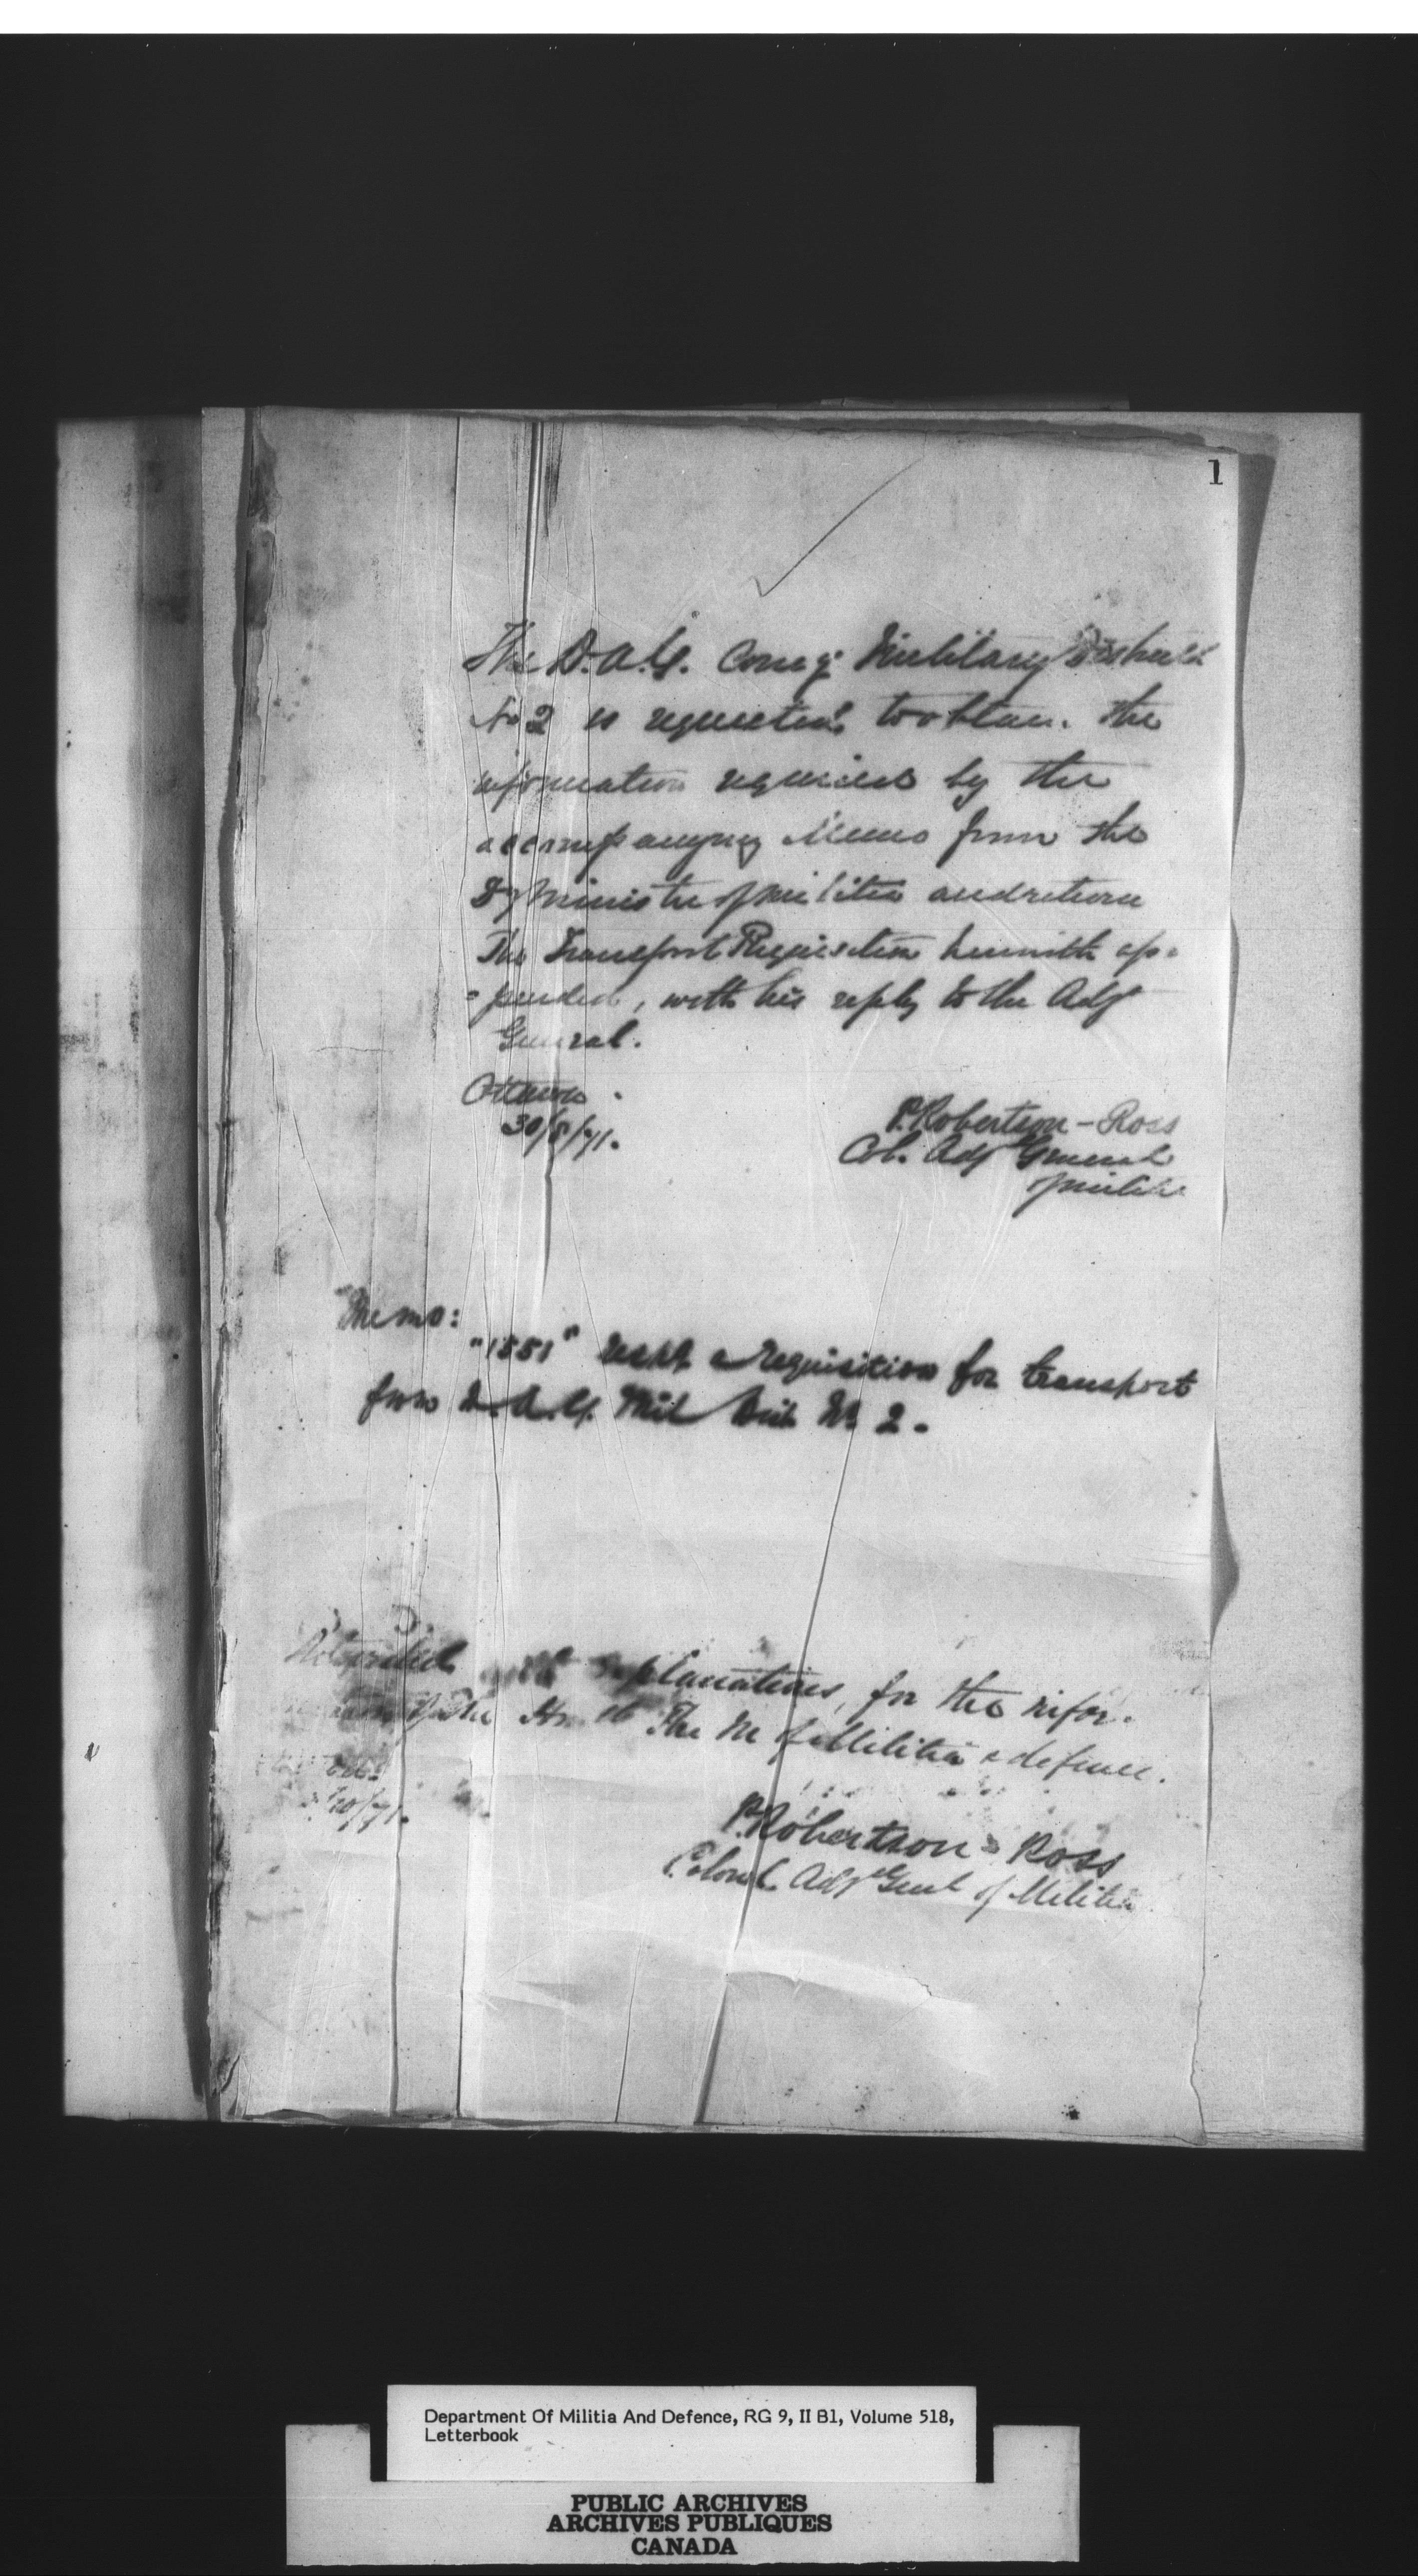 1
The D.A.G. Comg. Military District
No 2 is requested to obtain the
information required by the
accompanying Memo from the
Dy Minister of Militia and return
The Transport Requisition herewith ap=
=pended, with his reply to the Adjt
General.
Ottawa.
30/8/71.
P. Robertson-Ross
Col. Adjt General
of Militia
Memo:
"1551" a requisition for transport
from D.A.G. Mil Dist No 2.
with explanations, for the infor.
of the The M of Militia & defence.
/10/71.
P. Robertson=Ross
Colonel Adjt Genl of Militia.
Department Of Militia And Defence, RG 9, II B1, Volume 518,
Letterbook
PUBLIC ARCHIVES
ARCHIVES PUBLIQUES
CANADA